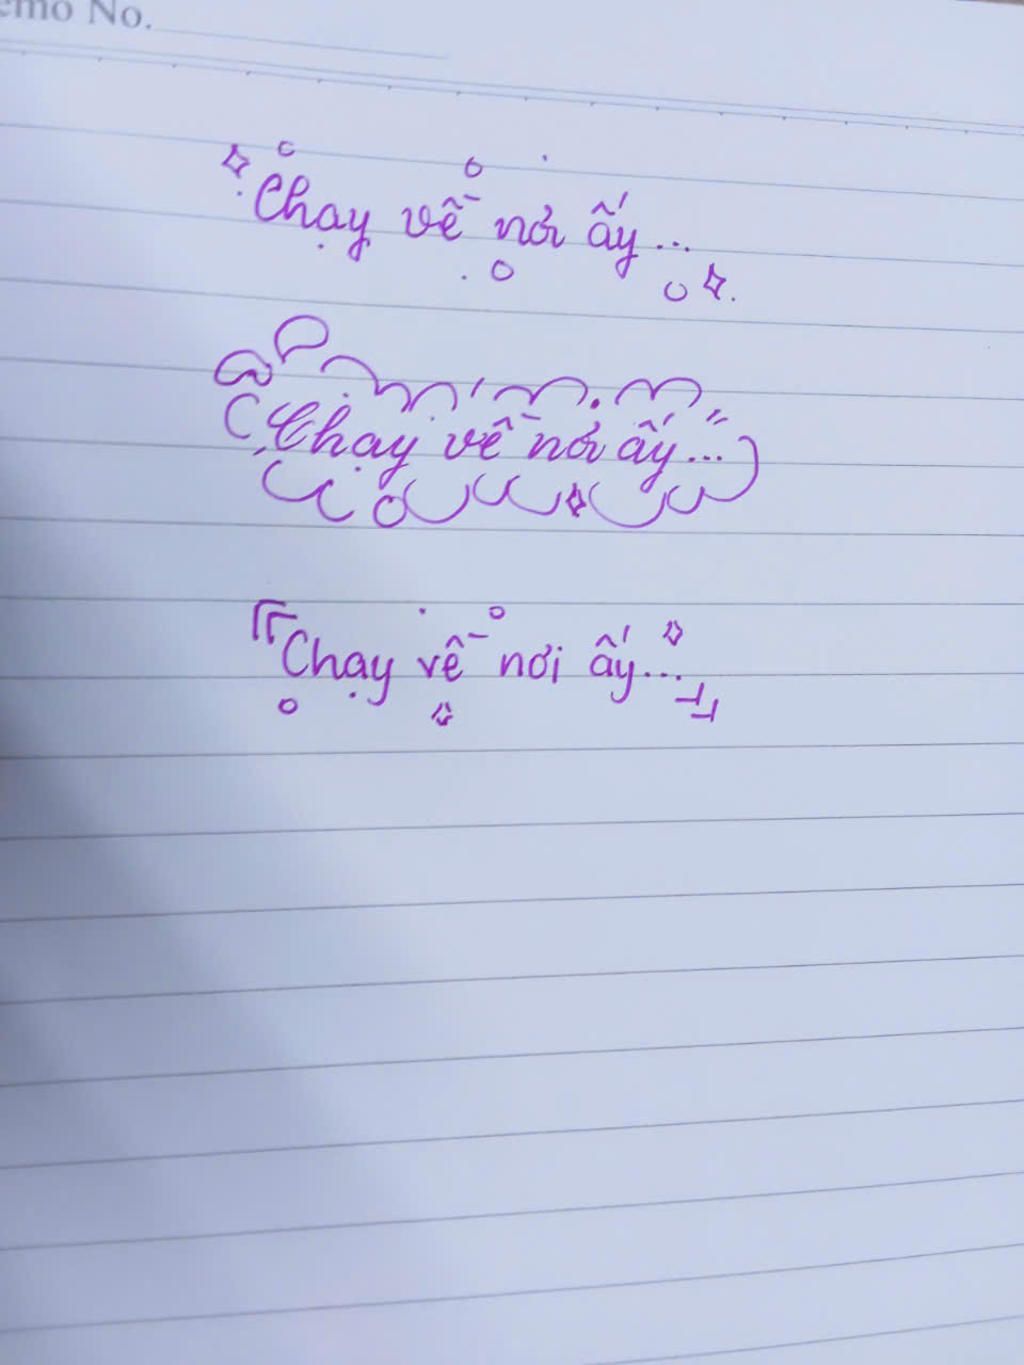 emo No.
Chạy về nơi ấy...
Chạy về nơi ấy...
『Chạy về nơi ấy...』